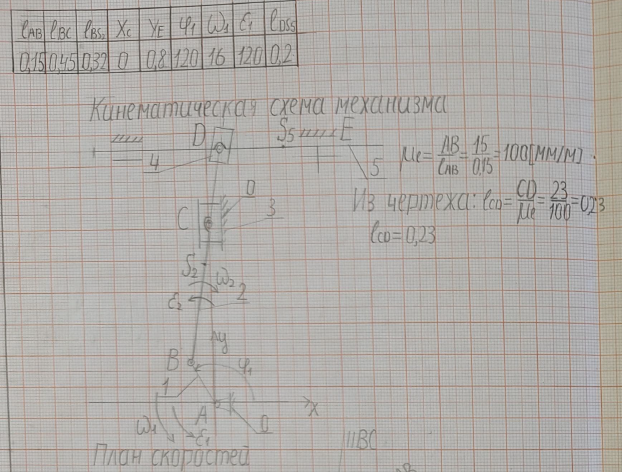 lAB lBC lBS₂ Xc YE φ₁ ω₁ ε₁ lDS5
0,15 0,45 0,32 0 0,8 120 16 120 0,2
Кинематическая схема механизма
D S5 E
4 5
μe = AB/lAB = 15/0,15 = 100 [мм/м]
0
C 3
Из чертежа: lCD = CD/μe = 23/100 = 0,23
lCD = 0,23
S₂
ω₂
ε₂ 2
y
B φ₁
1
A x
ω₁ ε₁ 0
План скоростей
||BC